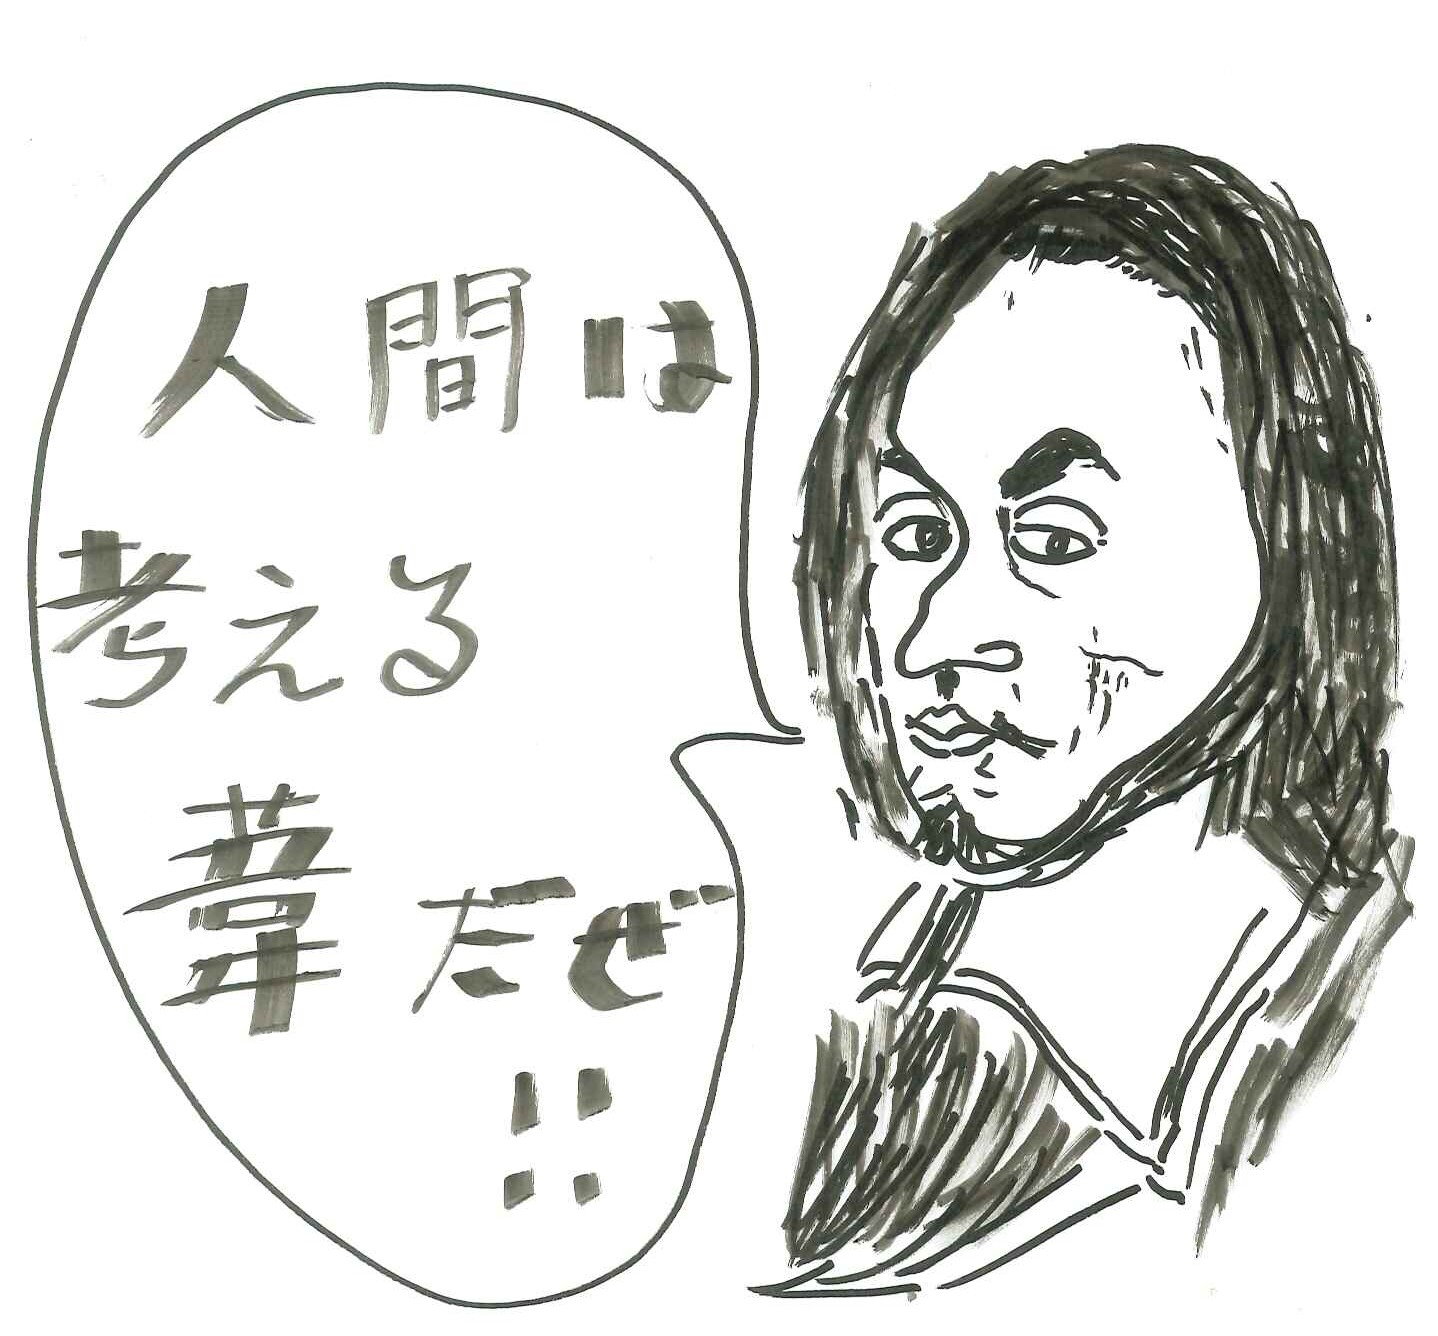 人間は
考える
葦だぜ
!!